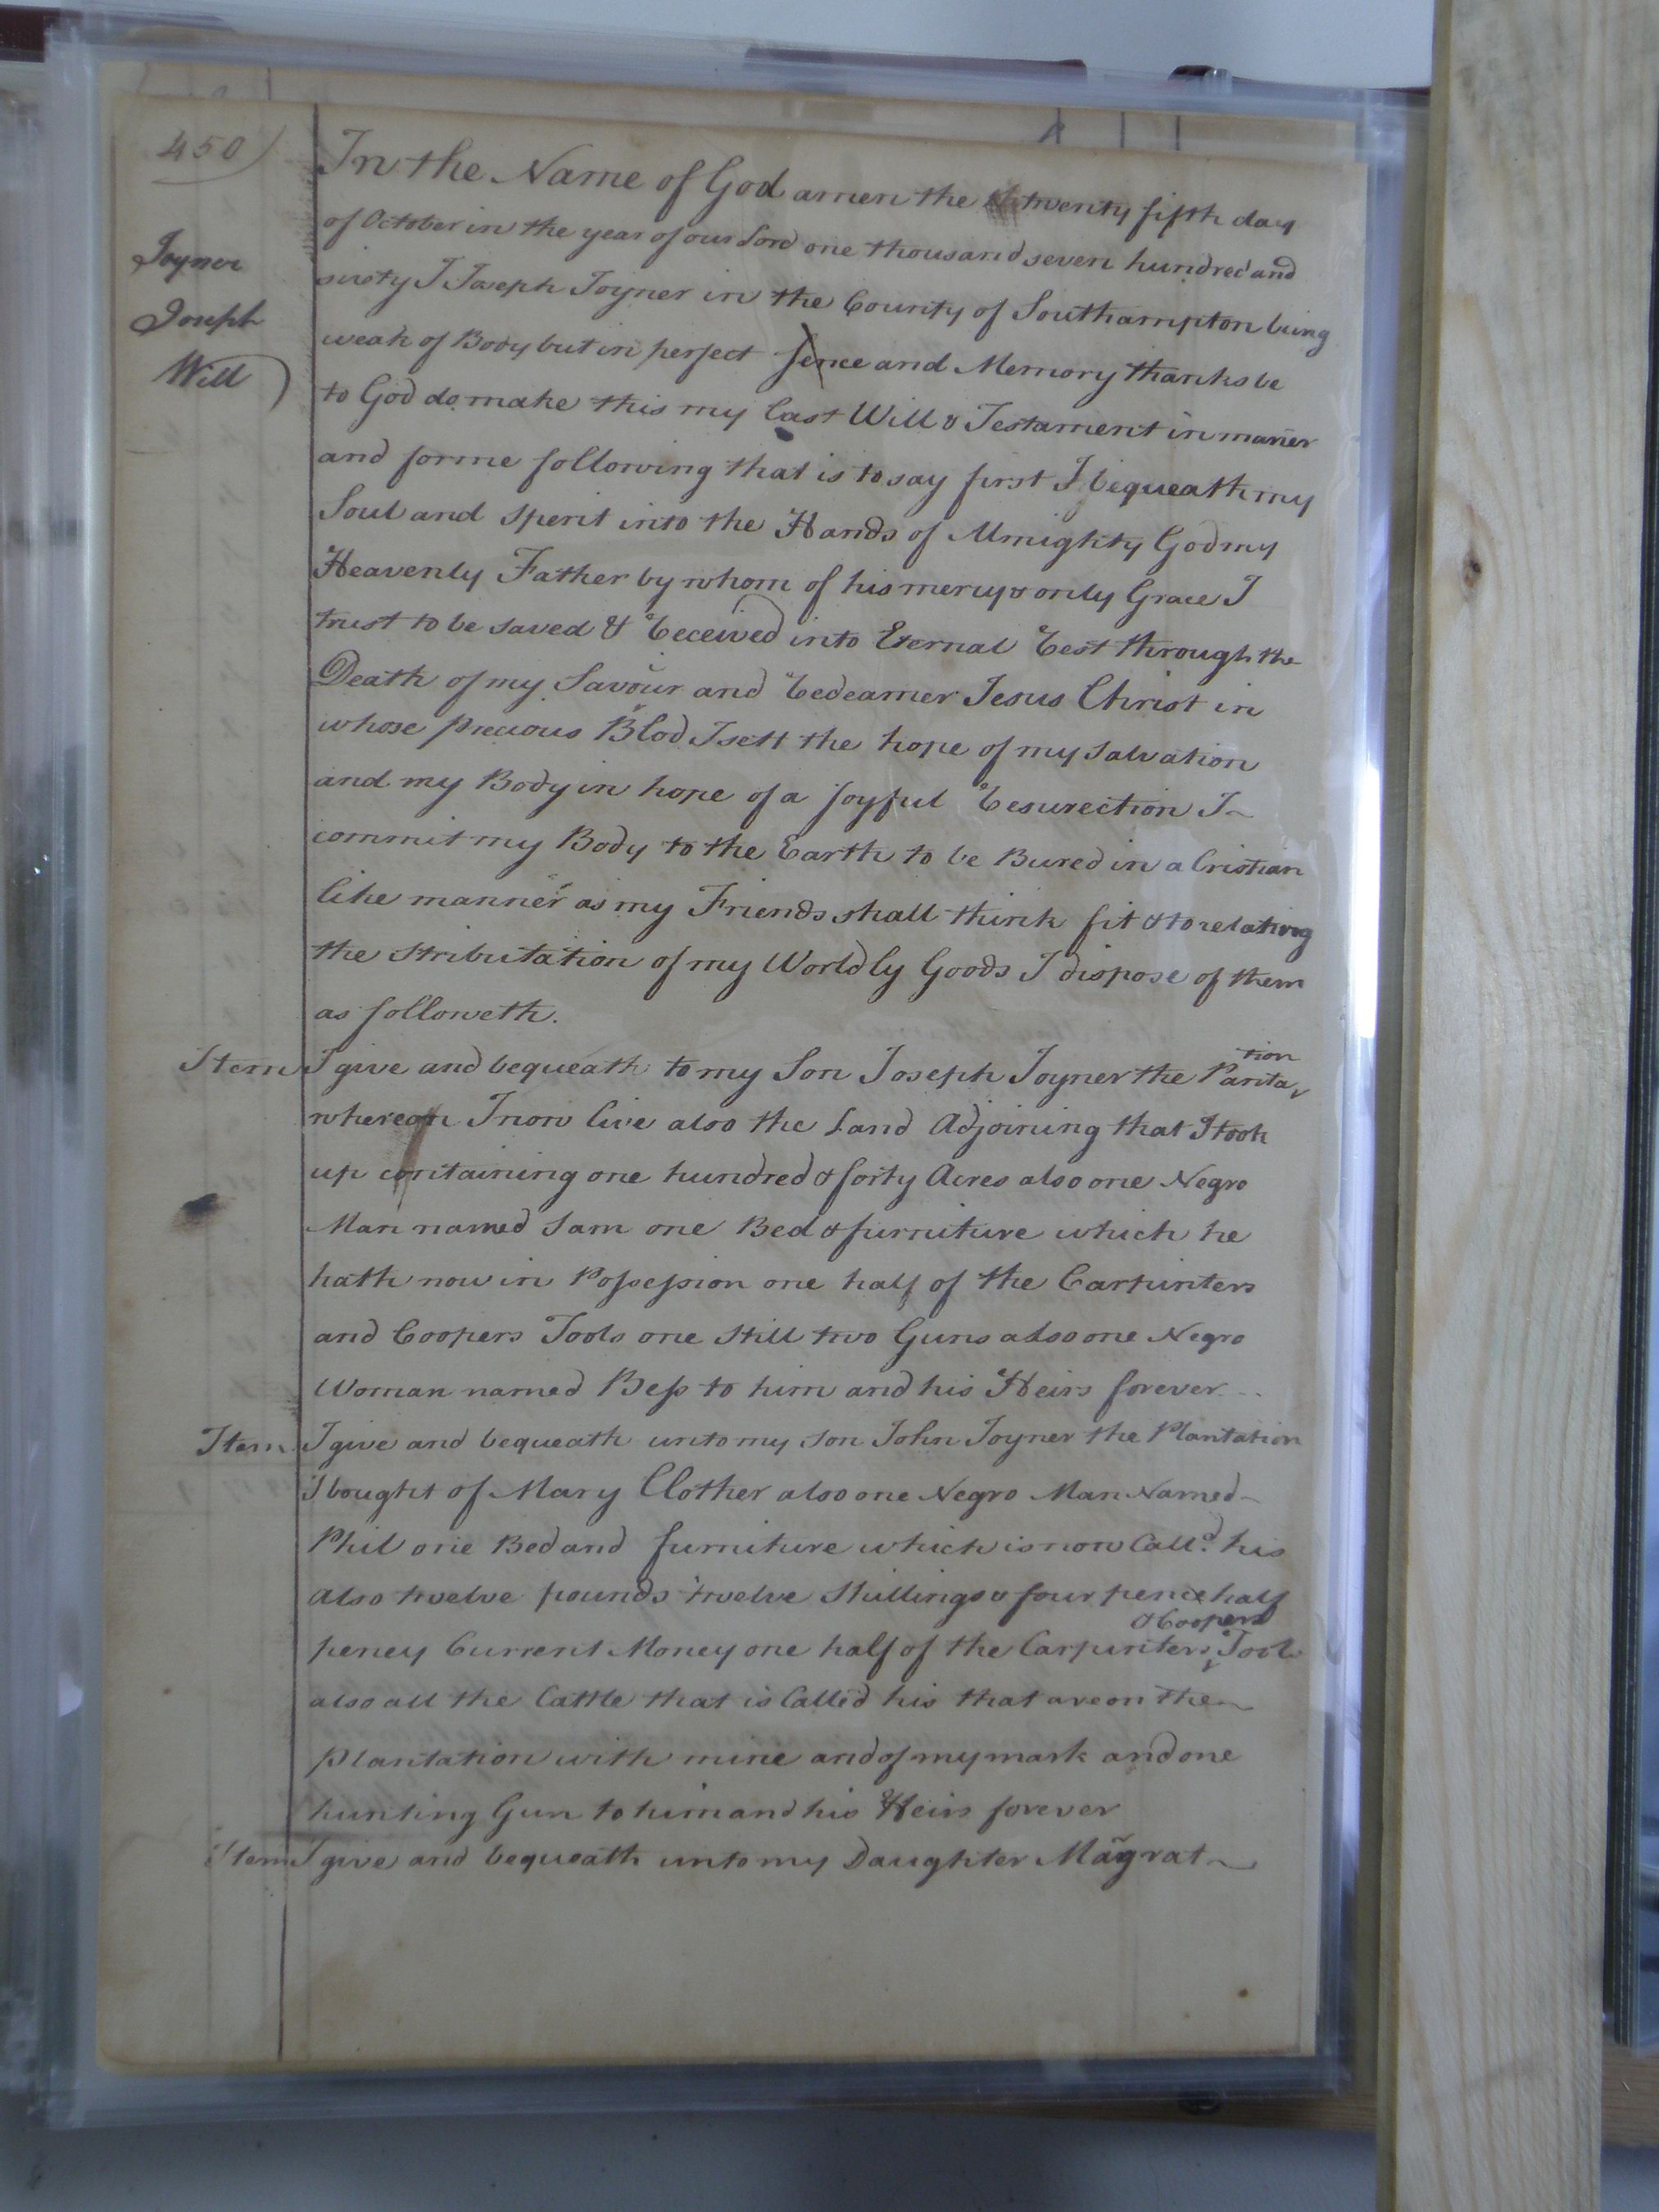 450)
Joyner
Joseph
Will)
In the Name of God amen the twenty fifth day
of October in the year of our Lord one thousand seven hundred and
sixty I Joseph Joyner in the County of Southampton being
weak of Body but in perfect sence and Memory thanks be
to God do make this my last Will & Testament in maner
and forme following that is to say first I bequeath my
Soul and Sperit into the Hands of Almighty God my
Heavenly Father by whom of his mercy & only Grace I
trust to be saved & Received into Eternal Rest through the
Death of my Savour and Redeamer Jesus Christ in
whose precious Blod I sett the hope of my Salvation
and my Body in hope of a Joyful Resurection I
commit my Body to the Earth to be Bured in a Cristian
like manner as my Friends shall think fit & to relating
the stributation of my Worldly Goods I dispose of them
as followeth.
Item I give and bequeath to my Son Joseph Joyner the Panta^tion
whereon I now live also the Land Adjoining that I took
up containing one hundred & forty Acres also one Negro
Man named Sam one Bed & furniture which he
hath now in Possession one half of the Carpinters
and Coopers Tools one Still two Guns also one Negro
Woman named Bess to him and his Heirs forever
Item I give and bequeath unto my Son John Joyner the Plantation
I bought of Mary Clother also one Negro Man Named
Phil one Bed and furniture which is now Call.d his
also twelve pounds twelve Shillings & four pence half
peney Current Money one half of the Carpinters ^& Coopers Tools
also all the Cattle that is Called his that are on the
plantation with mine and of my mark and one
hunting Gun to him and his Heirs forever
Item I give and bequeath unto my Daughter Magrat